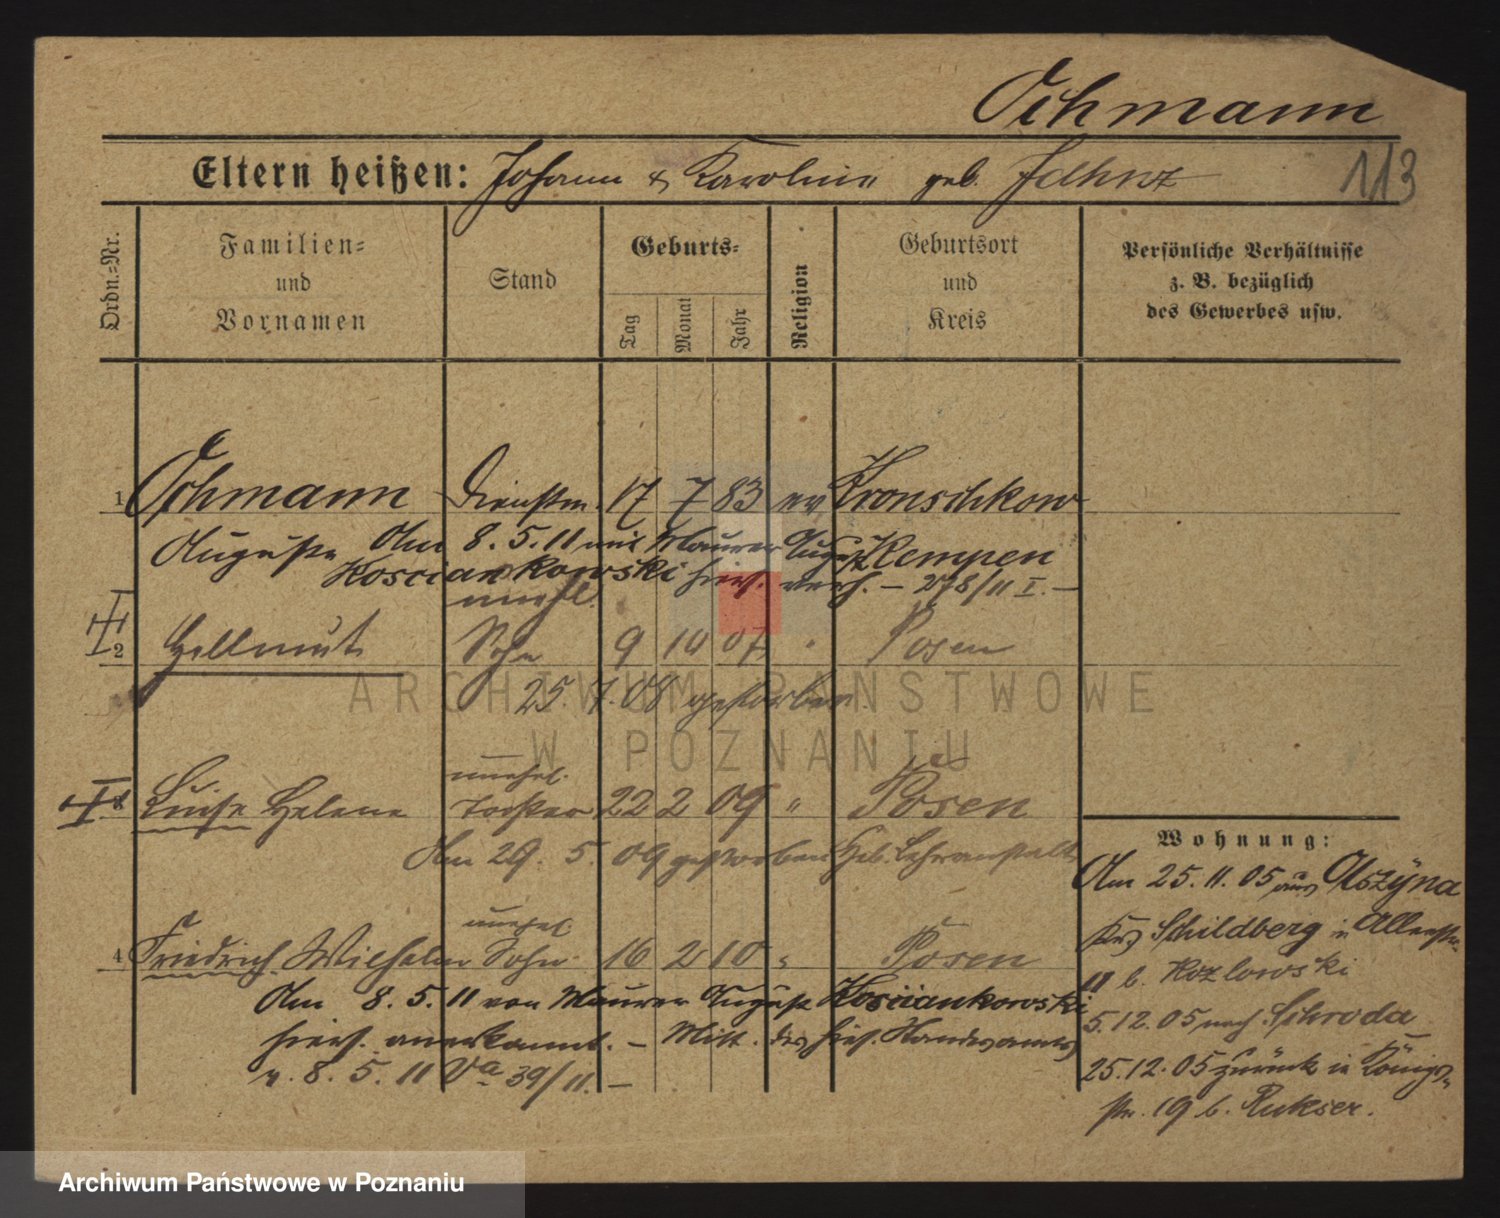 Ochmann
Eltern heißen: Johann & Karoline geb.
113
Ordn.=Nr.
Familien=
und
Vornamen
Stand
Geburts=
Tag
Monat
Jahr
Religion
Geburtsort
und
Kreis
Persönliche Verhältnisse
z. B. bezüglich
des Gewerbes usw.
1 Ochmann Dienstm. 17 7 83 ev Kronschkow
Auguste Am 8. 5. 11 mit Maurer August Kempen
Kosciankowski hies. verh. – 278/11 I. –
unehl.
2 Hellmut Sohn 9 10 07 " Posen
25. 7. 08 gestorben.
unehel.
Luise Helene Tochter 22 2 09 " Posen
Am 29. 5. 09 gestorben Heb. Lehranstalt
unehel.
4 Friedrich Wilhelm Sohn 16 2 10 " Posen
Am 8. 5. 11 von Maurer August Kosciankowski
hies. anerkannt. – Mitt. des hies. Standesamts
v. 8. 5. 11 Va 39/11. –
Wohnung:
Am 25. 11. 05 aus Olszyna
Krs Schildberg in Allerstr.
11 b. Kozlowski
5. 12. 05 nach Schroda
25. 12. 05 zurück in Königs-
str. 19 b. Rukser.
ARCHIWUM PAŃSTWOWE
W POZNANIU
Archiwum Państwowe w Poznaniu